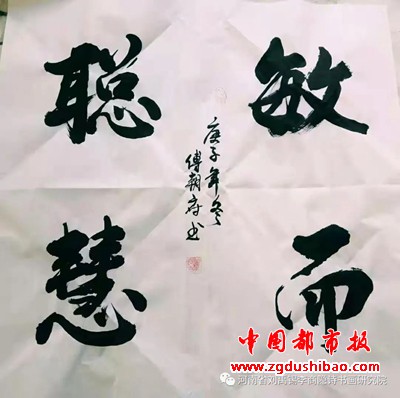 敏而
聪慧
庚子年冬
傅朝府书
中国都市报
www.zgdushibao.com
河南省刘禹锡李商隐诗书画研究院